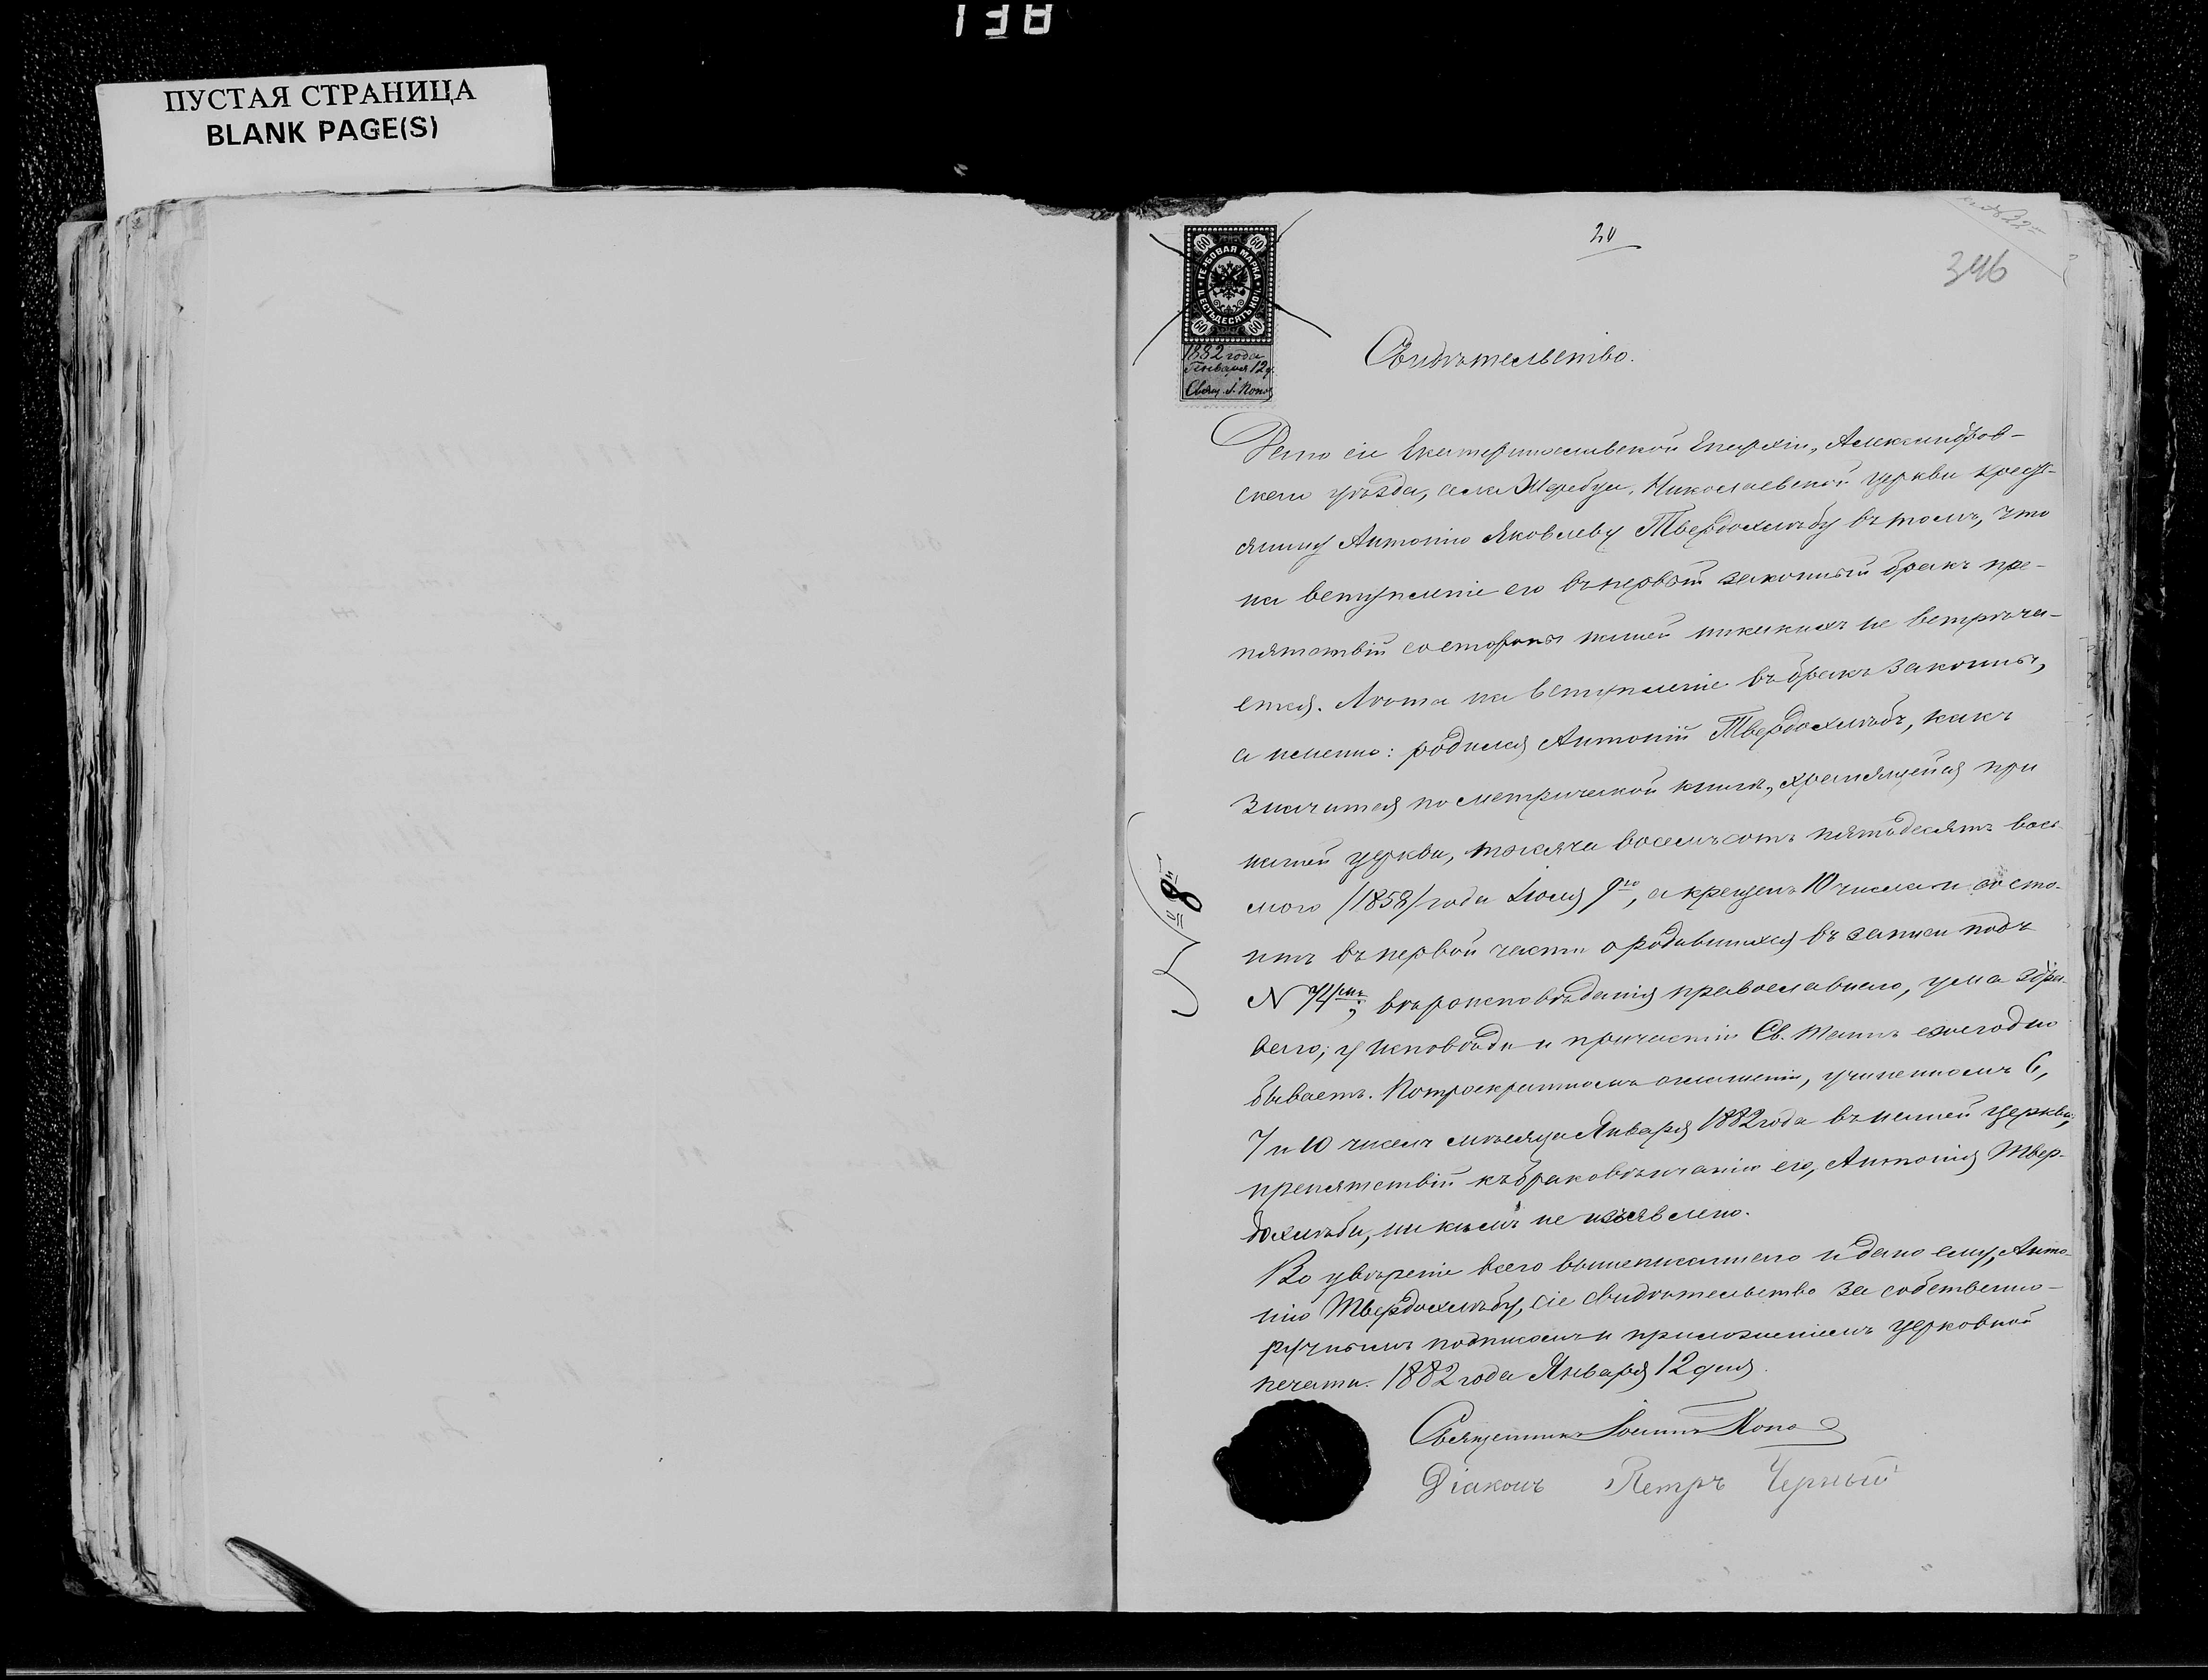 138
ПУСТАЯ СТРАНИЦА
BLANK PAGE(S)
20
346
60 60
ГЕРБОВАЯ МАРКА
ШЕСТЬДЕСЯТЪ КОП.
60 60
1882 года
Января 12 д.
Свящ. І. Попо
Свидѣтельство.
Дано сіе Екатеринославской Епархіи, Александров-
скаго уѣзда, села Жеребца, Николаевской церкви крестья-
янину Антонію Яковлеву Твердохлѣбу въ томъ, что
на вступленіе его въ первый законный бракъ пре-
пятствій со стороны нашей никакихъ не встрѣча-
ется. Лѣта на вступленіе въ бракъ законны,
а именно: родился Антоній Твердохлѣбъ, какъ
значится по метрической книгѣ, хранящейся при
нашей церкви, тысяча восемьсотъ пятьдесятъ вось-
мого /1858/ года Іюля 9го, а крещенъ 10 числа и состо-
итъ въ первой части о родившихся въ записи подъ
N 74мъ; вѣроисповѣданія православнаго, ума здра-
ваго; у исповѣди и причастія Св. Таинъ ежегодно
бываетъ. По троекратномъ оглашеніи, учиненномъ 6,
7 и 10 чиселъ мѣсяца Января 1882 года въ нашей церкви,
препятствій къ браковѣнчанію его, Антонія Твер-
дохлѣба, никѣмъ не изъявлено.
Во увѣреніе всего вышеписаннаго и дано ему, Анто-
нію Твердохлѣбу, сіе свидѣтельство за собственно-
ручнымъ подписомъ и приложеніемъ церковной
печати. 1882 года Января 12 дня.
Священникъ Іоаннъ Попо
Діаконъ Петръ Черный
8